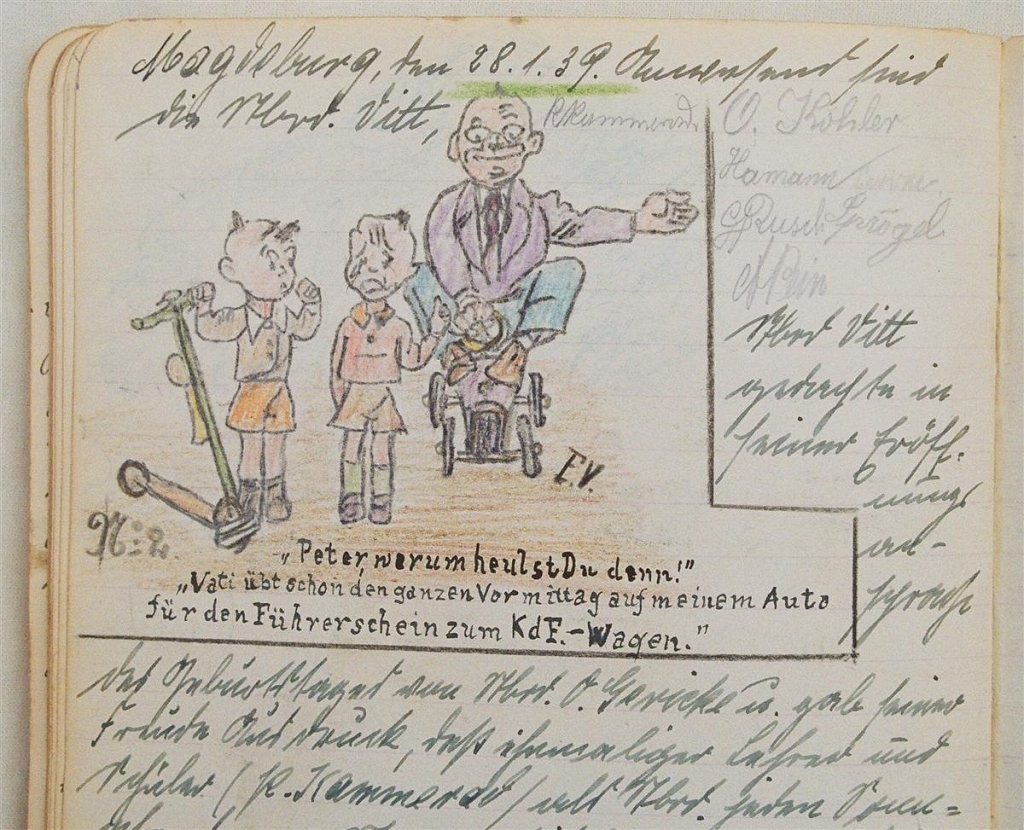 Magdeburg, den 28.1.39. Anwesend sind
die Sbrd. Vitt,
R Kammerad.
O. Köhler
Hamann
G Rusch Sprögel
Sbrd Vitt
gedachte in
seiner Eröff-
nungs
an-
sprache
E.V.
№ 2.
„Peter, warum heulst Du denn!"
„Vati übt schon den ganzen Vormittag auf meinem Auto
für den Führerschein zum KdF.-Wagen."
des Geburtstages von Sbrd. O. Gericke u. gab seiner
Freude Ausdruck, daß ehemaliger Lehrer und
Schüler (R. Kammerad) als Sbrd. jeden Sonn=